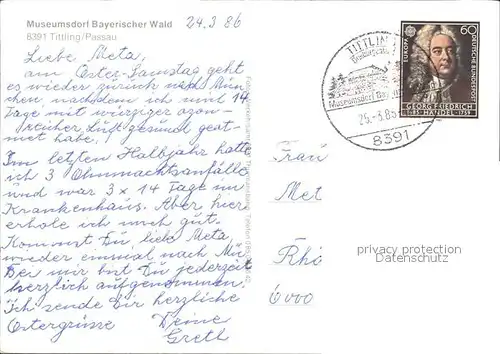 Museumsdorf Bayerischer Wald
8391 Tittling/Passau
24.3.86
Liebe Meta,
am Oster-Samstag geht
es wieder zurück nach Mün
chen, nachdem ich mich 14
Tage mit würziger ozon-
reicher Luft gesund geat-
met habe.
Im letzten Halbjahr hatte
ich 3 Ohnmachtsanfälle
und war 3 x 14 Tage im
Krankenhaus. Aber hier
erhole ich mich gut.
Kommst Du, liebe Meta,
wieder einmal nach Mü
Bei mir bist Du jederzeit
herzlich aufgenommen.
Ich sende Dir herzliche
Ostergrüsse Deine
Gretl
TITTLING
Museumsdorf Bay
25.-3.86
8391
EUROPA
60
DEUTSCHE BUNDESPOST
GEORG FRIEDRICH
1685 HÄNDEL 1759
Frau
Met
Rhi
6000
privacy protection
Datenschutz